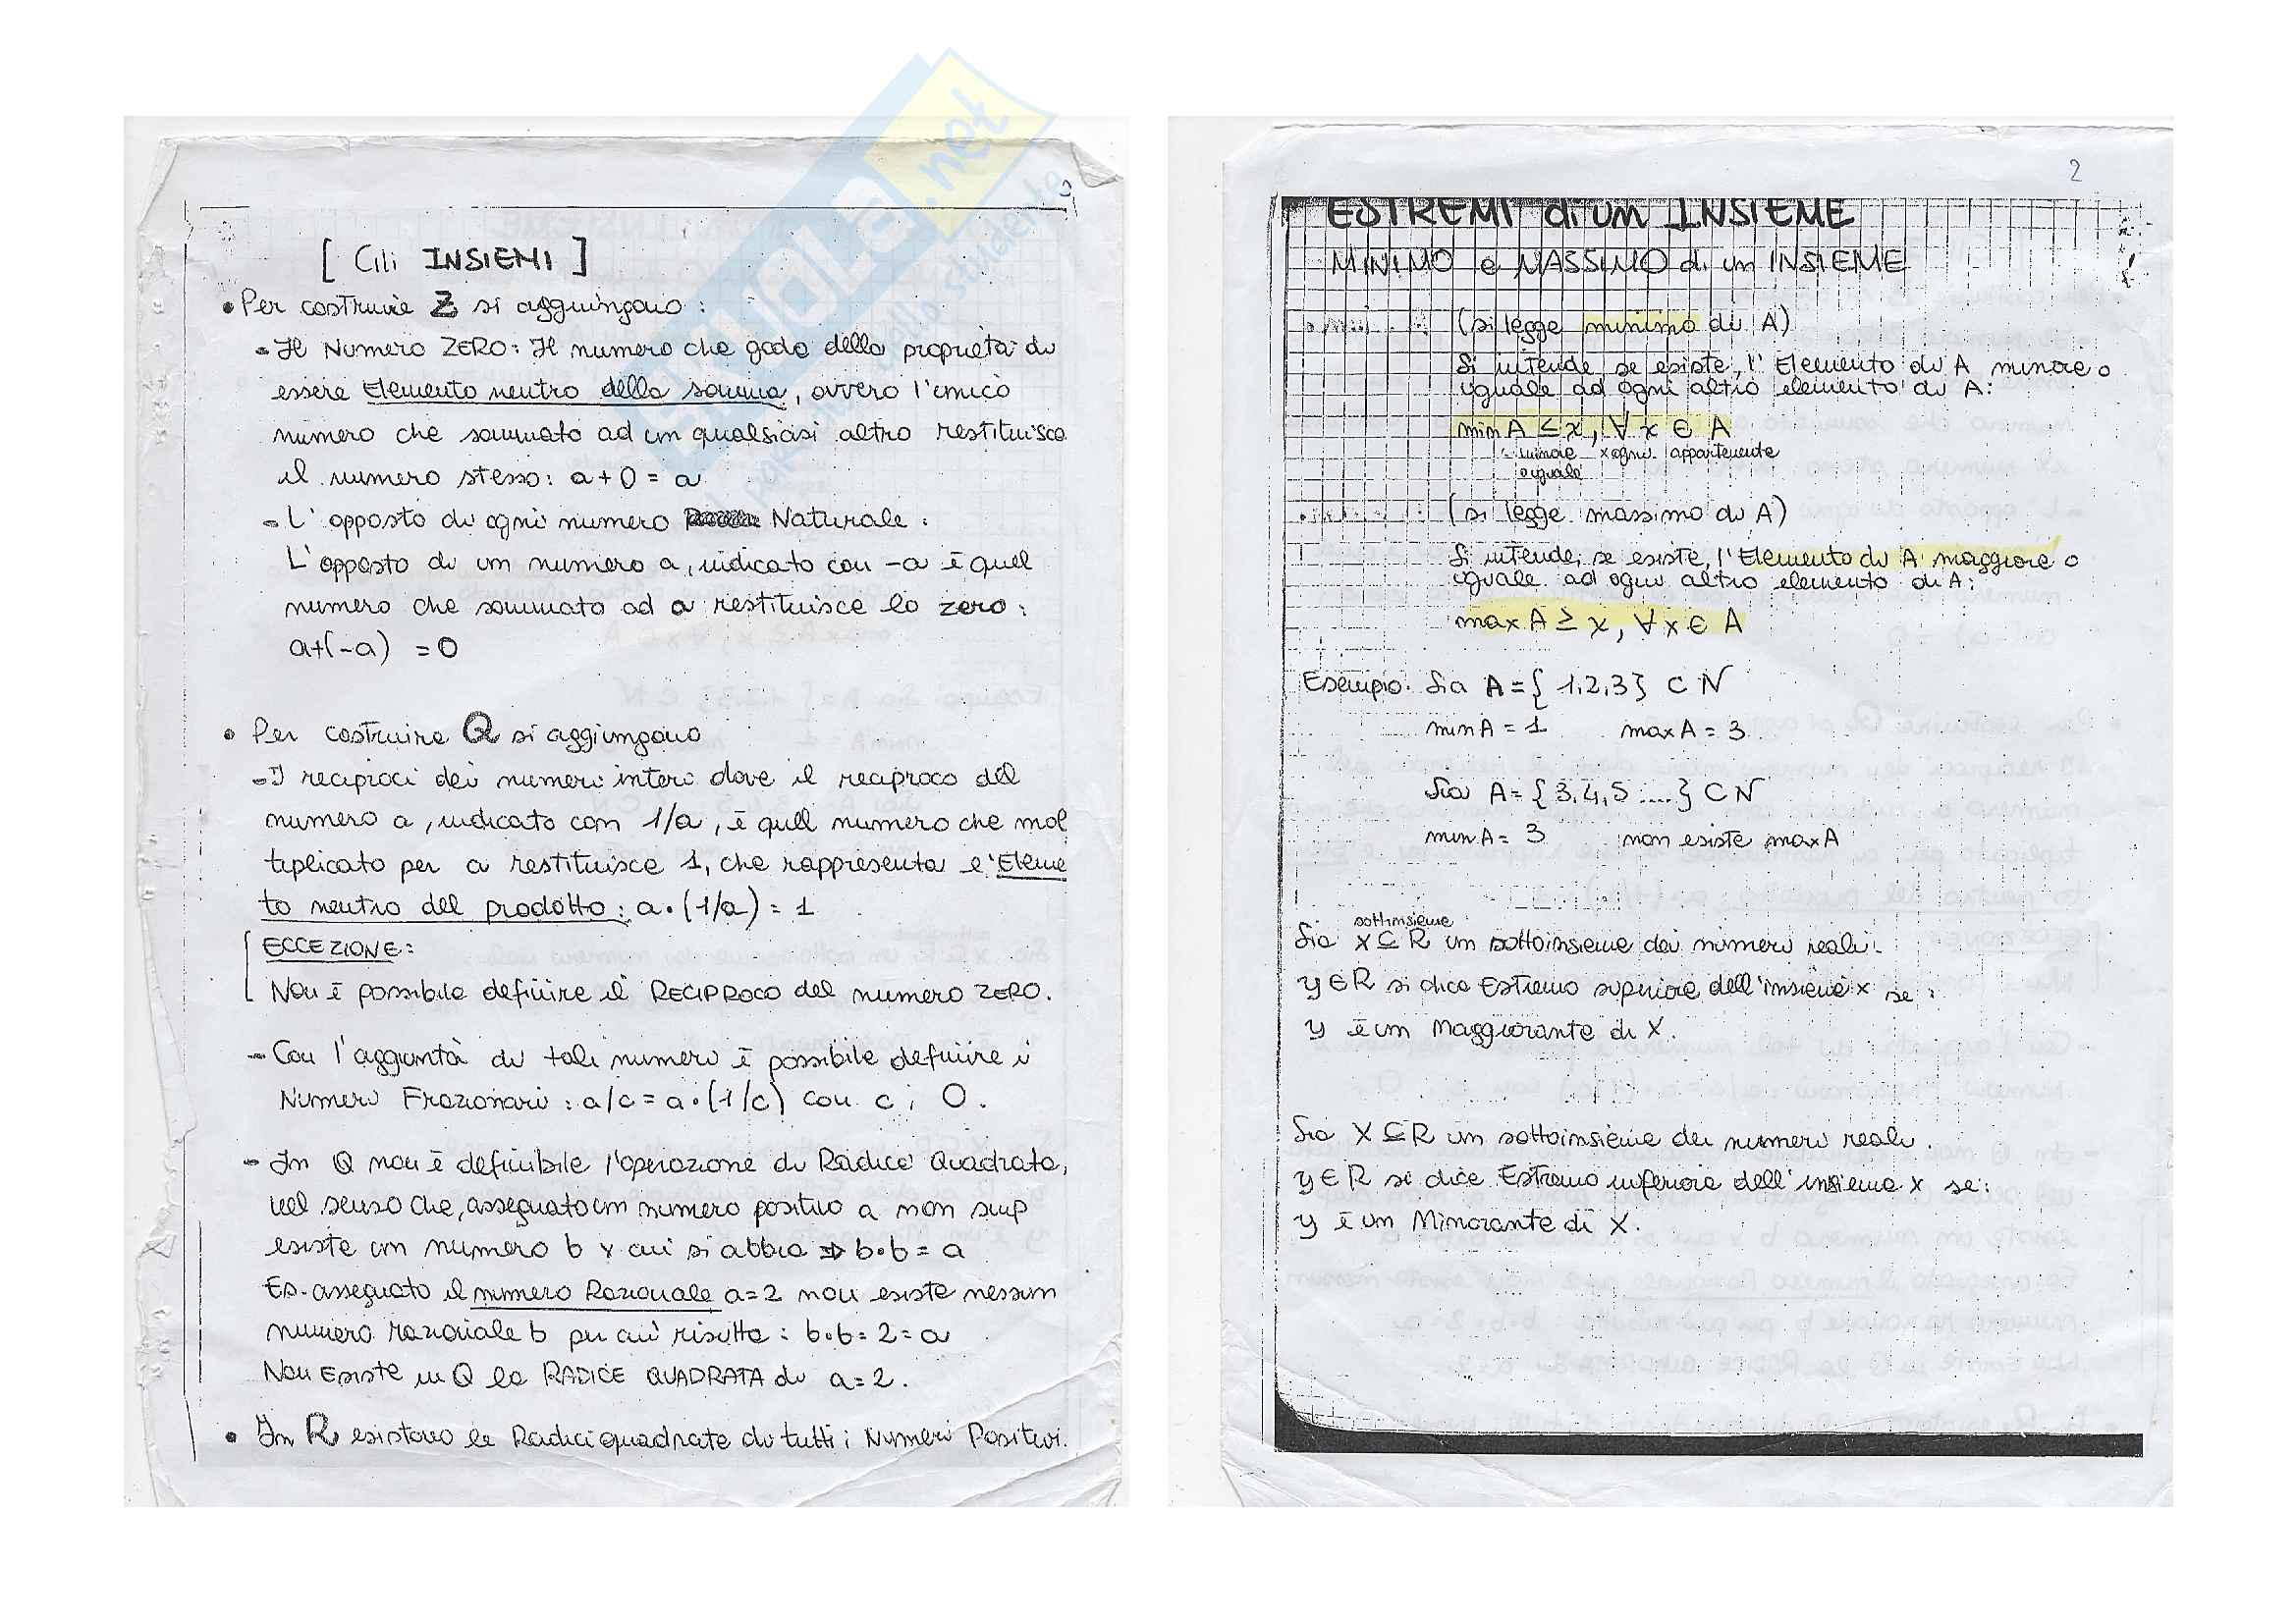 [ Gli INSIEMI ]
• Per costruire Z si aggiungono :
- Il Numero ZERO: Il numero che gode della proprietà di
essere Elemento neutro della somma, ovvero l'unico
numero che sommato ad un qualsiasi altro restituisce
il numero stesso: a+0 = a
- L' opposto di ogni numero Naturale :
L'opposto di un numero a, indicato con -a è quel
numero che sommato ad a restituisce lo zero:
a+(-a) = 0
• Per costruire Q si aggiungono
- I reciproci dei numeri interi dove il reciproco del
numero a, indicato con 1/a, è quel numero che mol
tiplicato per a restituisce 1, che rappresenta l'Eleme
to neutro del prodotto: a•(1/a) = 1
ECCEZIONE:
Non è possibile definire il RECIPROCO del numero ZERO.
- Con l'aggiunta di tali numeri è possibile definire i
Numeri Frazionari : a/c = a•(1/c) con c ¡ 0.
- In Q non è definibile l'operazione di Radice Quadrata,
nel senso che, assegnato un numero positivo a non semp
esiste un numero b x cui si abbia ⇒ b•b = a
Es. assegnato il numero Razionale a=2 non esiste nessun
numero razionale b per cui risulta : b•b = 2 = a
Non Esiste in Q la RADICE QUADRATA di a=2.
• In R esistono le Radici quadrate di tutti i Numeri Positivi.
2
ESTREMI di un INSIEME
MINIMO e MASSIMO di un INSIEME
(si legge minimo di A)
Si intende, se esiste, l' Elemento di A minore o
uguale ad ogni altro elemento di A:
min A ≤ x, ∀ x ∈ A
minore x ogni appartenente
o uguale
(si legge massimo di A)
Si intende, se esiste, l'Elemento di A maggiore o
uguale ad ogni altro elemento di A:
max A ≥ x, ∀ x ∈ A
Esempio. Sia A = { 1,2,3} ⊂ N
min A = 1 max A = 3
Sia A = { 3,4,5 ....} ⊂ N
min A = 3 non esiste max A
sottinsieme
Sia X ⊆ R un sottoinsieme dei numeri reali.
y ∈ R si dice Estremo superiore dell'insieme x se :
y è un Maggiorante di X.
Sia X ⊆ R un sottoinsieme dei numeri reali.
y ∈ R si dice Estremo inferiore dell'insieme x se:
y è un Minorante di X.